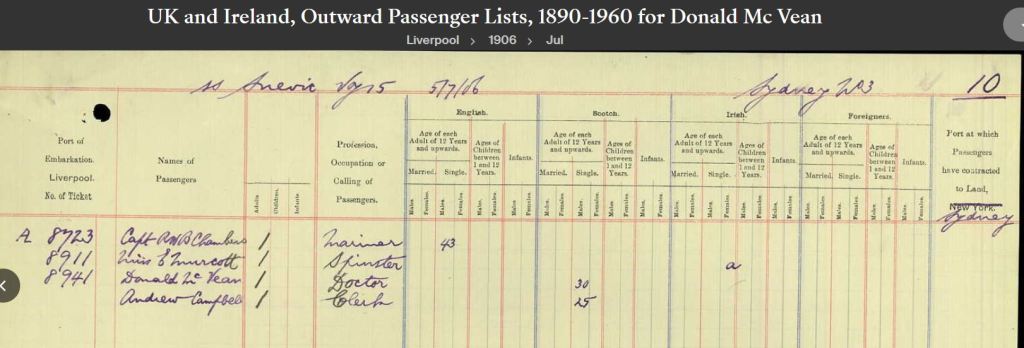 UK and Ireland, Outward Passenger Lists, 1890-1960 for Donald Mc Vean
Liverpool > 1906 > Jul
SS Suevic Voy 15 5/7/06 Sydney No3 10
English. Scotch. Irish. Foreigners.
Port of Embarkation. Liverpool. No. of Ticket
Names of Passengers
Adults Children Infants
Profession, Occupation or Calling of Passengers.
Age of each Adult of 12 Years and upwards. Ages of Children between 1 and 12 Years. Infants.
Age of each Adult of 12 Years and upwards. Ages of Children between 1 and 12 Years. Infants.
Age of each Adult of 12 Years and upwards. Ages of Children between 1 and 12 Years. Infants.
Age of each Adult of 12 Years and upwards. Ages of Children between 1 and 12 Years. Infants.
Married. Single. Married. Single. Married. Single. Married. Single.
Males. Females. Males. Females. Males. Females. Males. Females.
Males. Females. Males. Females. Males. Females. Males. Females.
Males. Females. Males. Females. Males. Females. Males. Females.
Males. Females. Males. Females. Males. Females. Males. Females.
Port at which Passengers have contracted to Land,
New York.
Sydney
A 8723 Capt Chambers 1 Mariner 43
8911 Miss E Murcott 1 Spinster a
8941 Donald Mc Vean 1 Doctor 30
Andrew Campbell 1 Clerk 25